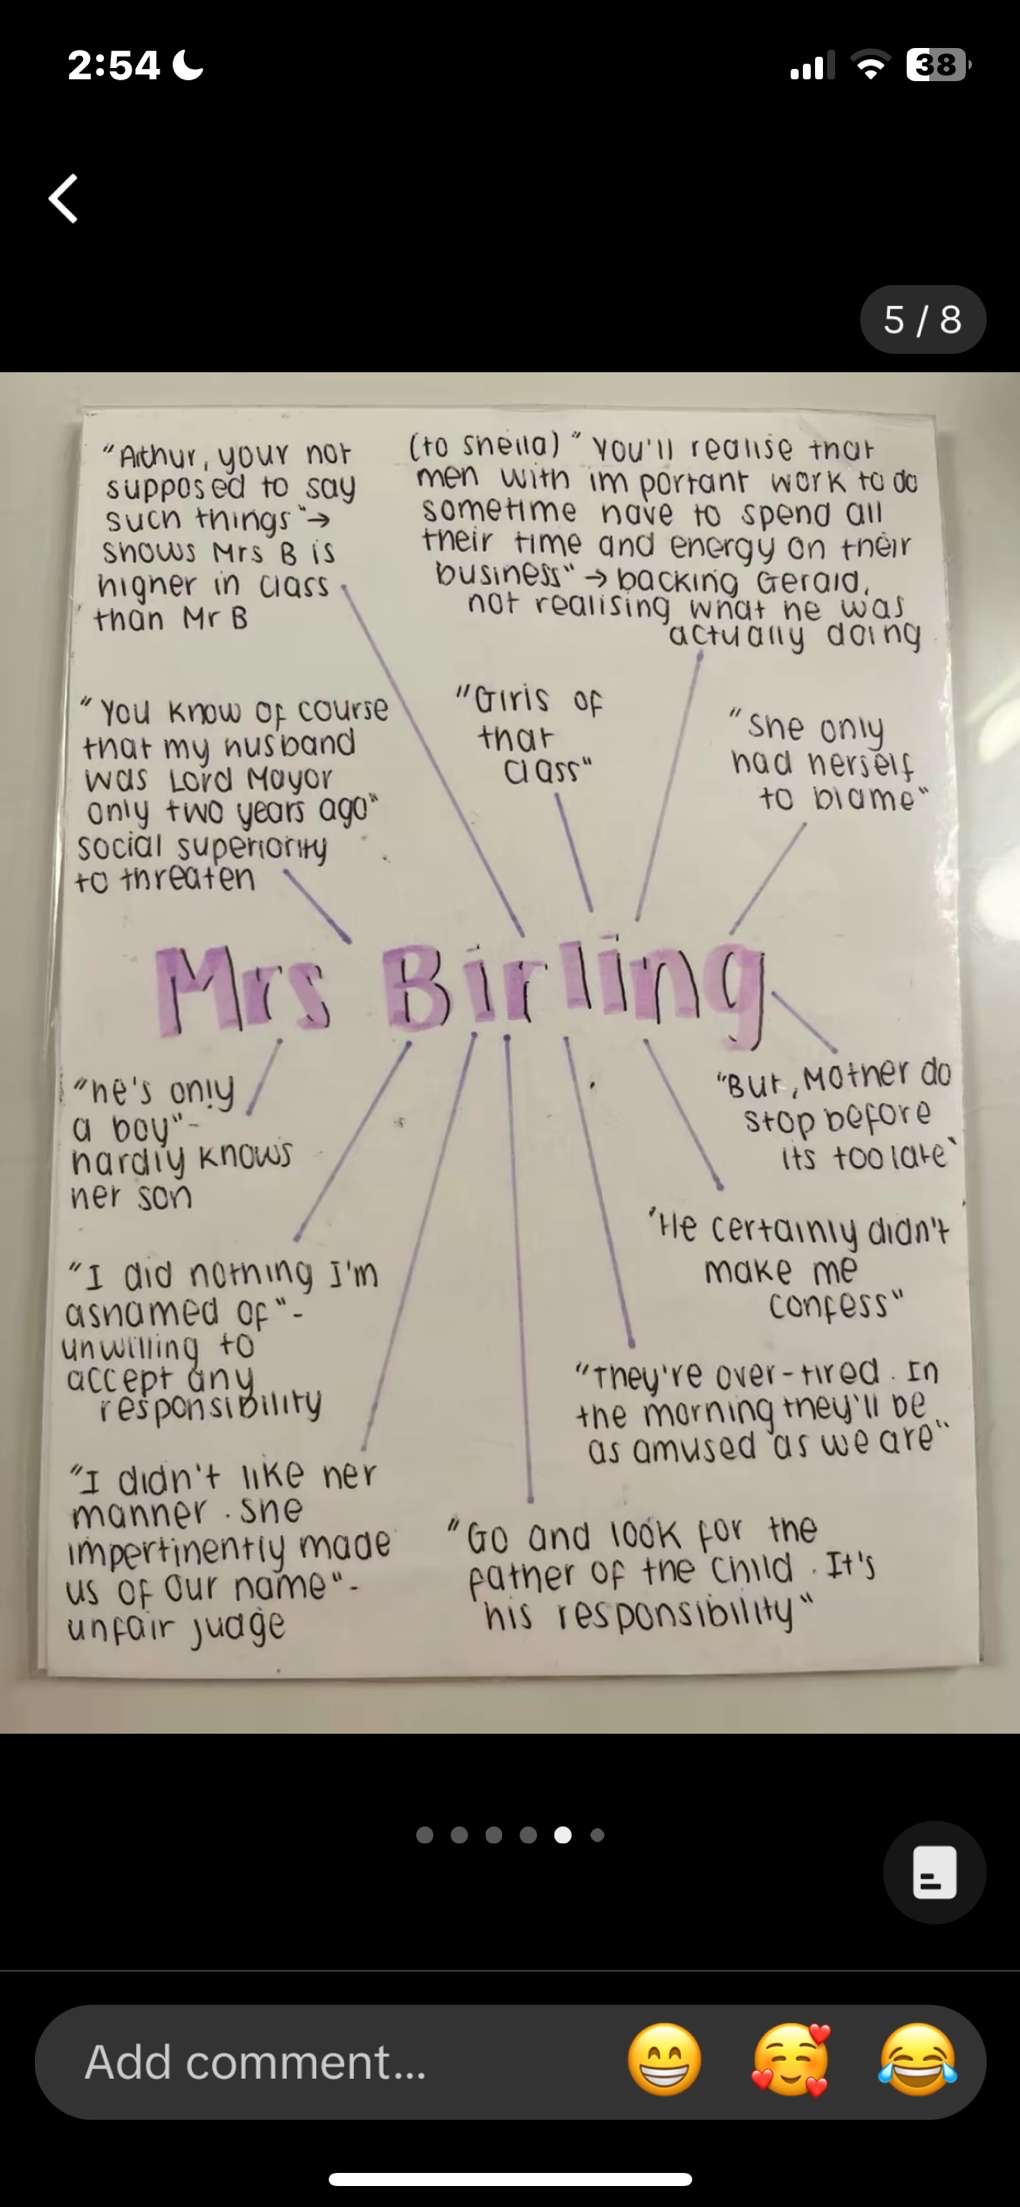 2:54
38
5 / 8
"Arthur, your not
supposed to say
such things" →
shows Mrs B is
higher in class
than Mr B
(to sheila) "You'll realise that
men with important work to do
sometime have to spend all
their time and energy on their
business" → backing Gerald,
not realising what he was
actually doing
"You know of course
that my husband
was Lord Mayor
only two years ago"
social superiority
to threaten
"Girls of
that
class"
"She only
had herself
to blame"
Mrs Birling
"he's only
a boy"-
hardly knows
her son
"But, Mother do
stop before
its too late"
"I did nothing I'm
ashamed of"-
unwilling to
accept any
responsibility
'He certainly didn't
make me
confess"
"They're over-tired. In
the morning they'll be
as amused as we are"
"I didn't like her
manner. She
impertinently made
us of our name"-
unfair judge
"Go and look for the
father of the child. It's
his responsibility"
Add comment...